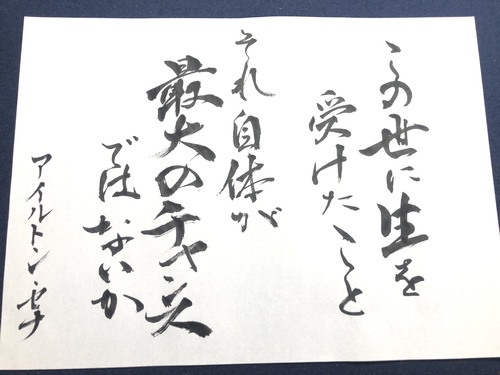 この世に生を
受けたこと
それ自体が
最大のチャンス
ではないか
アイルトン・セナ